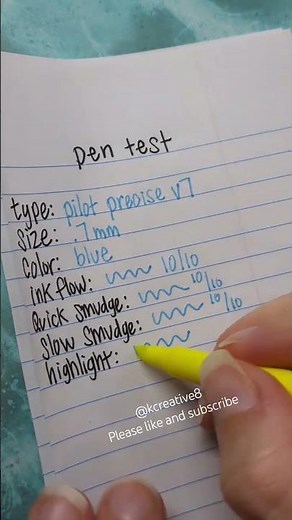 pen test
type: pilot precise v7
size: .7mm
color: blue
ink flow: 10/10
Quick smudge: 10/10
slow smudge: 10/10
highlight:
@kcreative8
Please like and subscribe